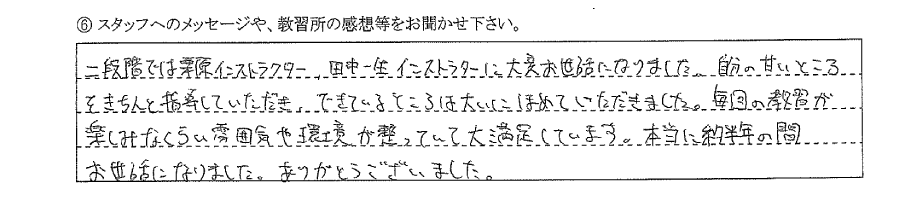 ⑥ スタッフへのメッセージや、教習所の感想等をお聞かせ下さい。
二段階では栗原インストラクター、田中一生インストラターに大変お世話になりました。自分の甘いところ
をきちんと指導していただき、できているところは大いにほめていただきました。毎回の教習が
楽しみなくらい雰囲気や環境が整っていて大満足しています。本当に約半年の間
お世話になりました。ありがとうございました。